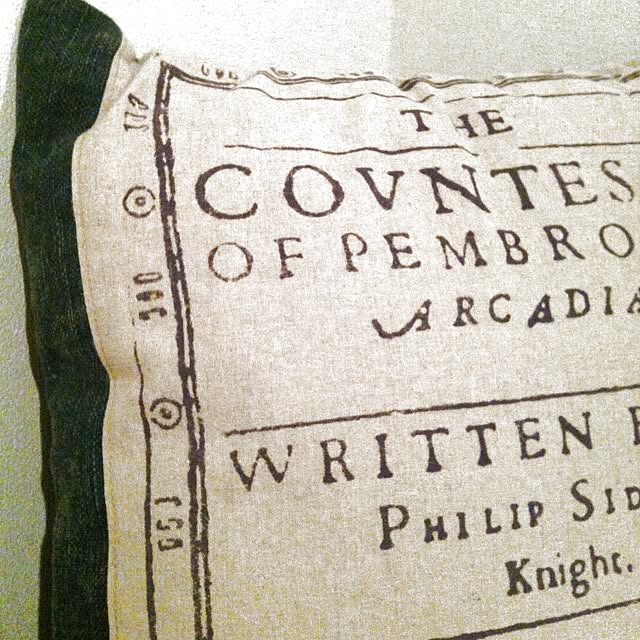 THE
COVNTES
OF PEMBRO
ARCADIA
WRITTEN
PHILIP SID
Knight.